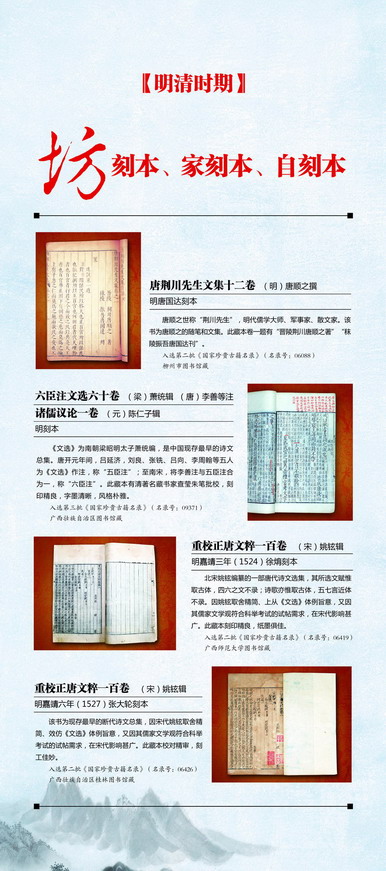 【明清时期】
坊刻本、家刻本、自刻本
唐荆川先生文集十二卷 （明）唐顺之撰
明唐国达刻本
唐顺之世称“荆川先生”，明代儒学大师、军事家、散文家。该
书为唐顺之的随笔和文集。此藏本卷一题有“晋陵荆川唐顺之著” “秣
陵振吾唐国达刊”。
入选第二批《国家珍贵古籍名录》（名录号：06088）
柳州市图书馆藏
六臣注文选六十卷 （梁）萧统辑 （唐）李善等注
诸儒议论一卷 （元）陈仁子辑
明刻本
《文选》为南朝梁昭明太子萧统编，是中国现存最早的诗文
总集。唐开元年间，吕延济、刘良、张铣、吕向、李周翰等五人
为《文选》作注，称“五臣注”；至南宋，将李善注与五臣注合
为一，称“六臣注”。此藏本有清著名藏书家查莹朱笔批校，刻
印精良，字墨清晰，风格朴雅。
入选第三批《国家珍贵古籍名录》（名录号：09371）
广西壮族自治区图书馆藏
重校正唐文粹一百卷 （宋）姚铉辑
明嘉靖三年（1524）徐焴刻本
北宋姚铉编纂的一部唐代诗文选集，其所选文赋惟
取古体，四六之文不录；诗歌亦惟取古体，五七言近体
不录。因姚铉取舍精简、上从《文选》体例旨意，又因
其儒家文学观符合科举考试的试帖需求，在宋代影响甚
广。此藏本刻印精良，纸墨俱佳。
入选第二批《国家珍贵古籍名录》（名录号：06419）
广西师范大学图书馆藏
重校正唐文粹一百卷 （宋）姚铉辑
明嘉靖六年（1527）张大轮刻本
该书为现存最早的断代诗文总集，因宋代姚铉取舍精
简、效仿《文选》体例旨意，又因其儒家文学观符合科举
考试的试帖需求，在宋代影响甚广。此藏本校对精审，刻
工佳妙。
入选第二批《国家珍贵古籍名录》（名录号：06426）
广西壮族自治区桂林图书馆藏